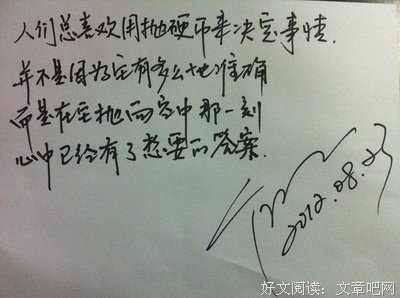 人们总喜欢用抛硬币来决定事情.
并不是因为它有多么地准确
而是在它抛向空中那一刻
心中已经有了想要的答案.
2012.08.23
好文阅读：文章吧网